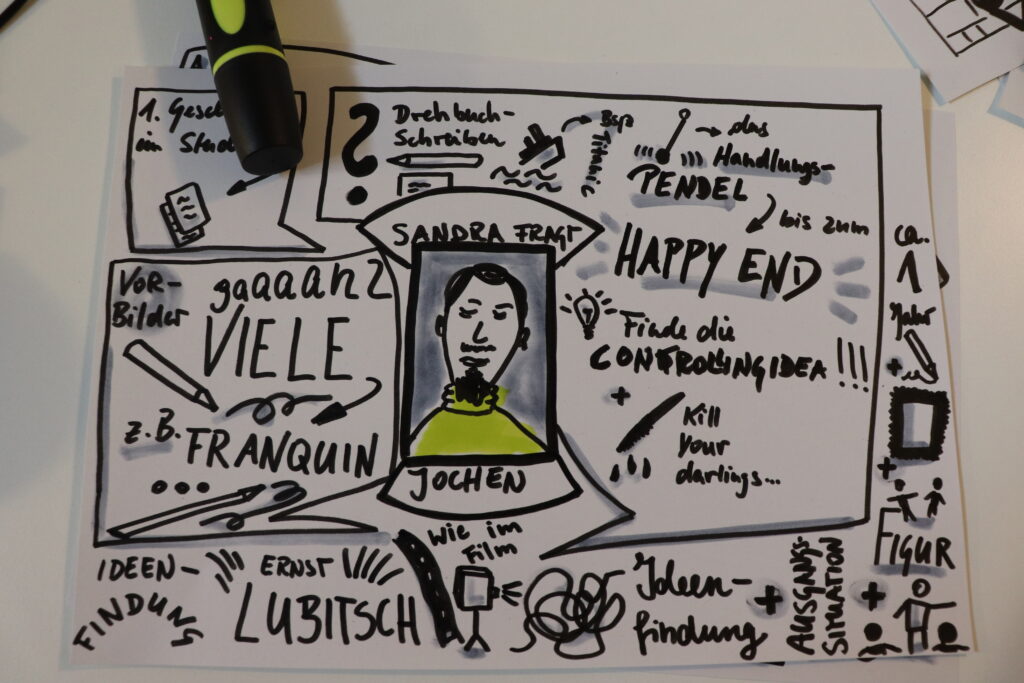 1. Gesch
im Stud
?
Drehbuch-
Schreiben
Bsp
Titanic
→ das
Handlungs-
PENDEL
bis zum
HAPPY END
SANDRA FRAGT
JOCHEN
Finde die
CONTROLINGIDEA !!!
+
Kill
your
darlings...
VOR-
Bilder
gaaaanz
VIELE
z.B.
FRANQUIN
...
IDEEN-
FINDUNG
ERNST
LUBITSCH
Wie im
Film
Ideen-
findung
+
AUSGANGS-
SITUATION
+
ca.
1
Jahr
+
+
FIGUR